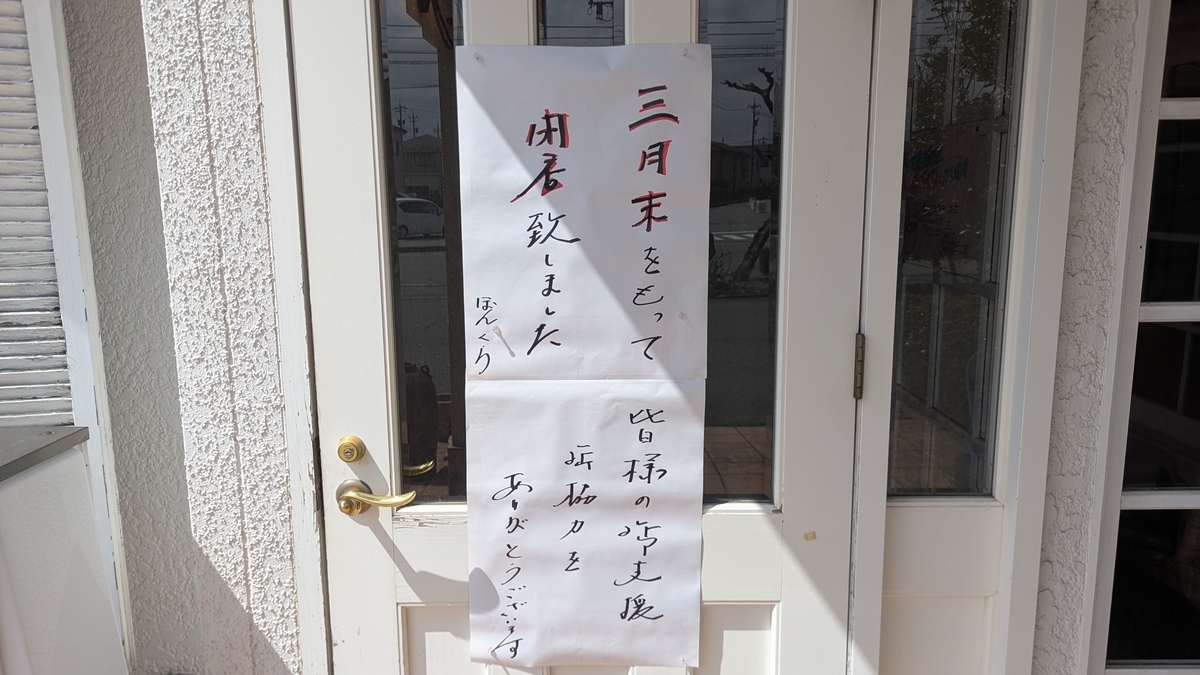 三月末をもって
閉店致しました
ぼんくり
皆様の御支援
御協力を
ありがとうございます